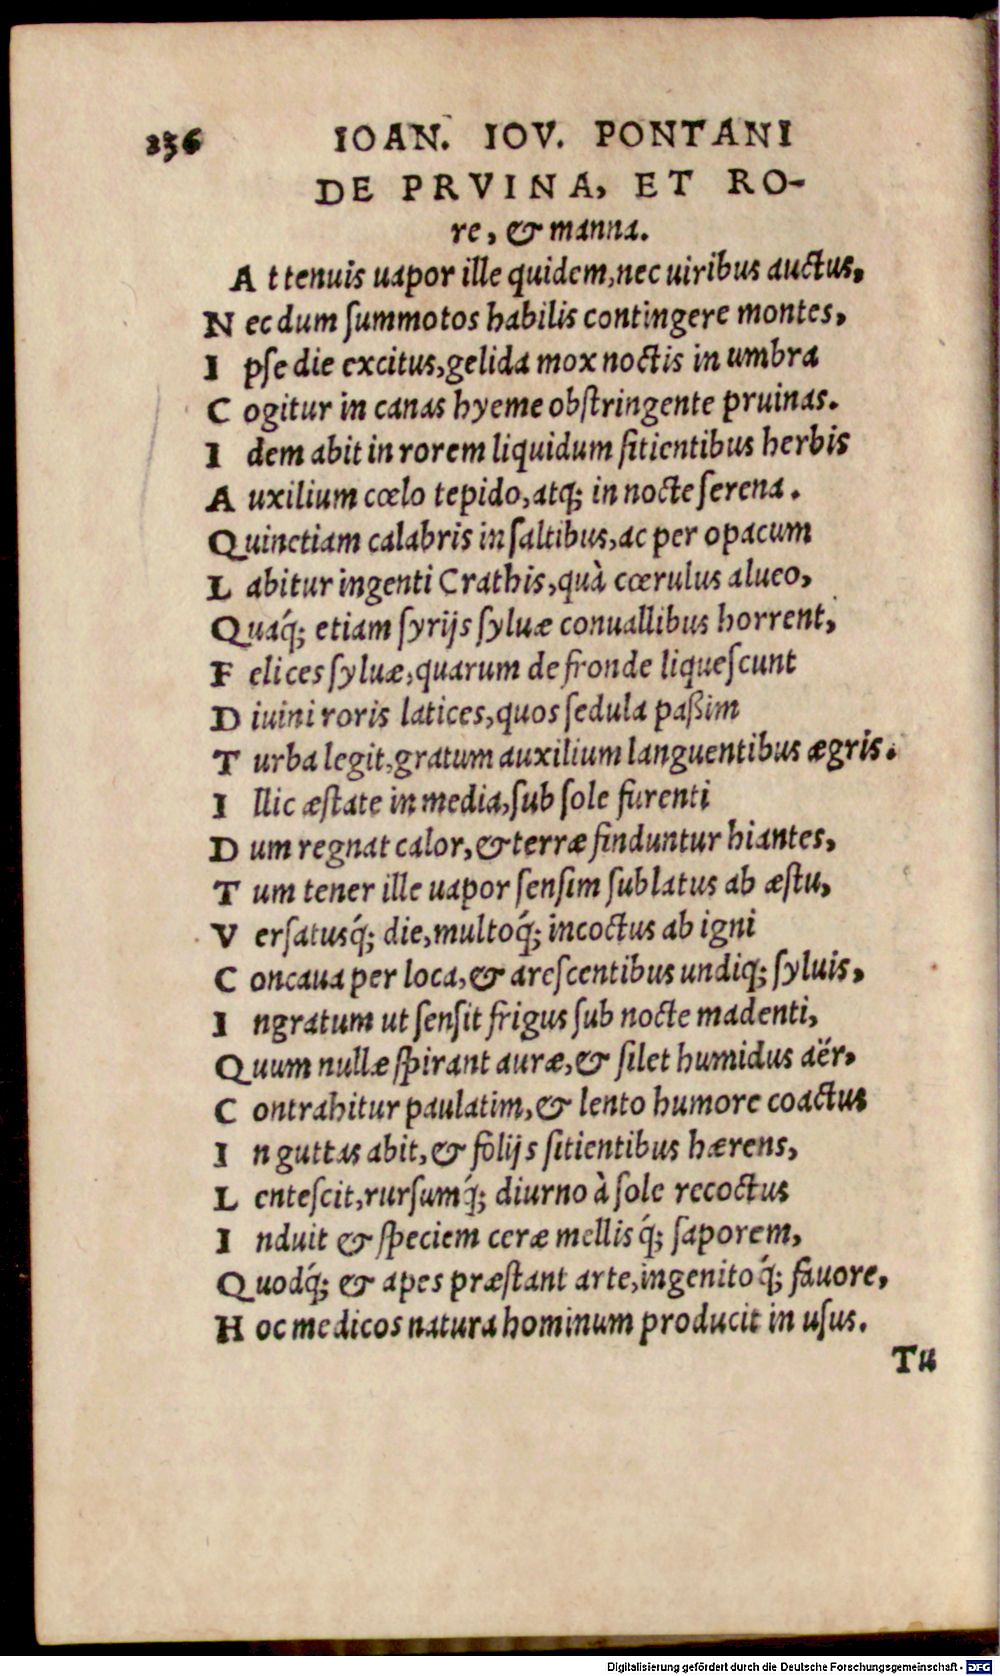 236 IOAN. IOV. PONTANI
DE PRVINA, ET RO-
re, & manna.
At tenuis uapor ille quidem, nec uiribus auctus,
Nec dum ſummotos habilis contingere montes,
Ipſe die excitus, gelida mox noctis in umbra
Cogitur in canas hyeme obſtringente pruinas.
Idem abit in rorem liquidum ſitientibus herbis
Auxilium cœlo tepido, atq; in nocte ſerena.
Quinetiam calabris in ſaltibus, ac per opacum
Labitur ingenti Crathis, quà cœrulus alueo,
Quaq́; etiam ſyrijs ſyluæ conuallibus horrent,
Felices ſyluæ, quarum de fronde liqueſcunt
Diuini roris latices, quos ſedula paßim
Turba legit, gratum auxilium languentibus ægris.
Illic æſtate in media, ſub ſole furenti
Dum regnat calor, & terræ finduntur hiantes,
Tum tener ille uapor ſenſim ſublatus ab æſtu,
Verſatusq́; die, multoq́; incoctus ab igni
Concaua per loca, & areſcentibus undiq; ſyluis,
Ingratum ut ſenſit frigus ſub nocte madenti,
Quum nullæ ſpirant auræ, & ſilet humidus aër,
Contrahitur paulatim, & lento humore coactus
In guttas abit, & folijs ſitientibus hærens,
Lenteſcit, rurſumq́; diurno à ſole recoctus
Induit & ſpeciem ceræ mellisq́; ſaporem,
Quodq́; & apes præſtant arte, ingenitoq́; fauore,
Hoc medicos natura hominum producit in uſus.
Tu
Digitalisierung gefördert durch die Deutsche Forschungsgemeinschaft - DFG